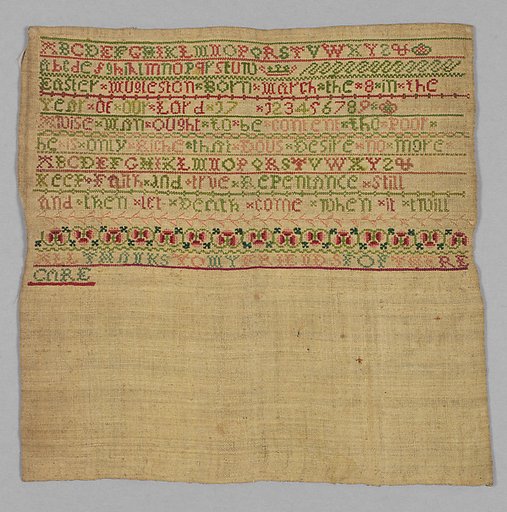 ABCDEFGHIKLMNOPQRSTVWXYZ&
abcdefghiklmnopqrstuw
Easter Mugleston Born March the 8 in the
Year of our Lord 17 123456789
A wise man ought to be content tho poor
he is only Riche that Dous Desire no more
ABCDEFGHIKLMNOPQRSTVWXYZ&
Keep Faith and true Repentance still
and then let Death come when it twill
ALL THANKS TO MY FOR RE
CARE